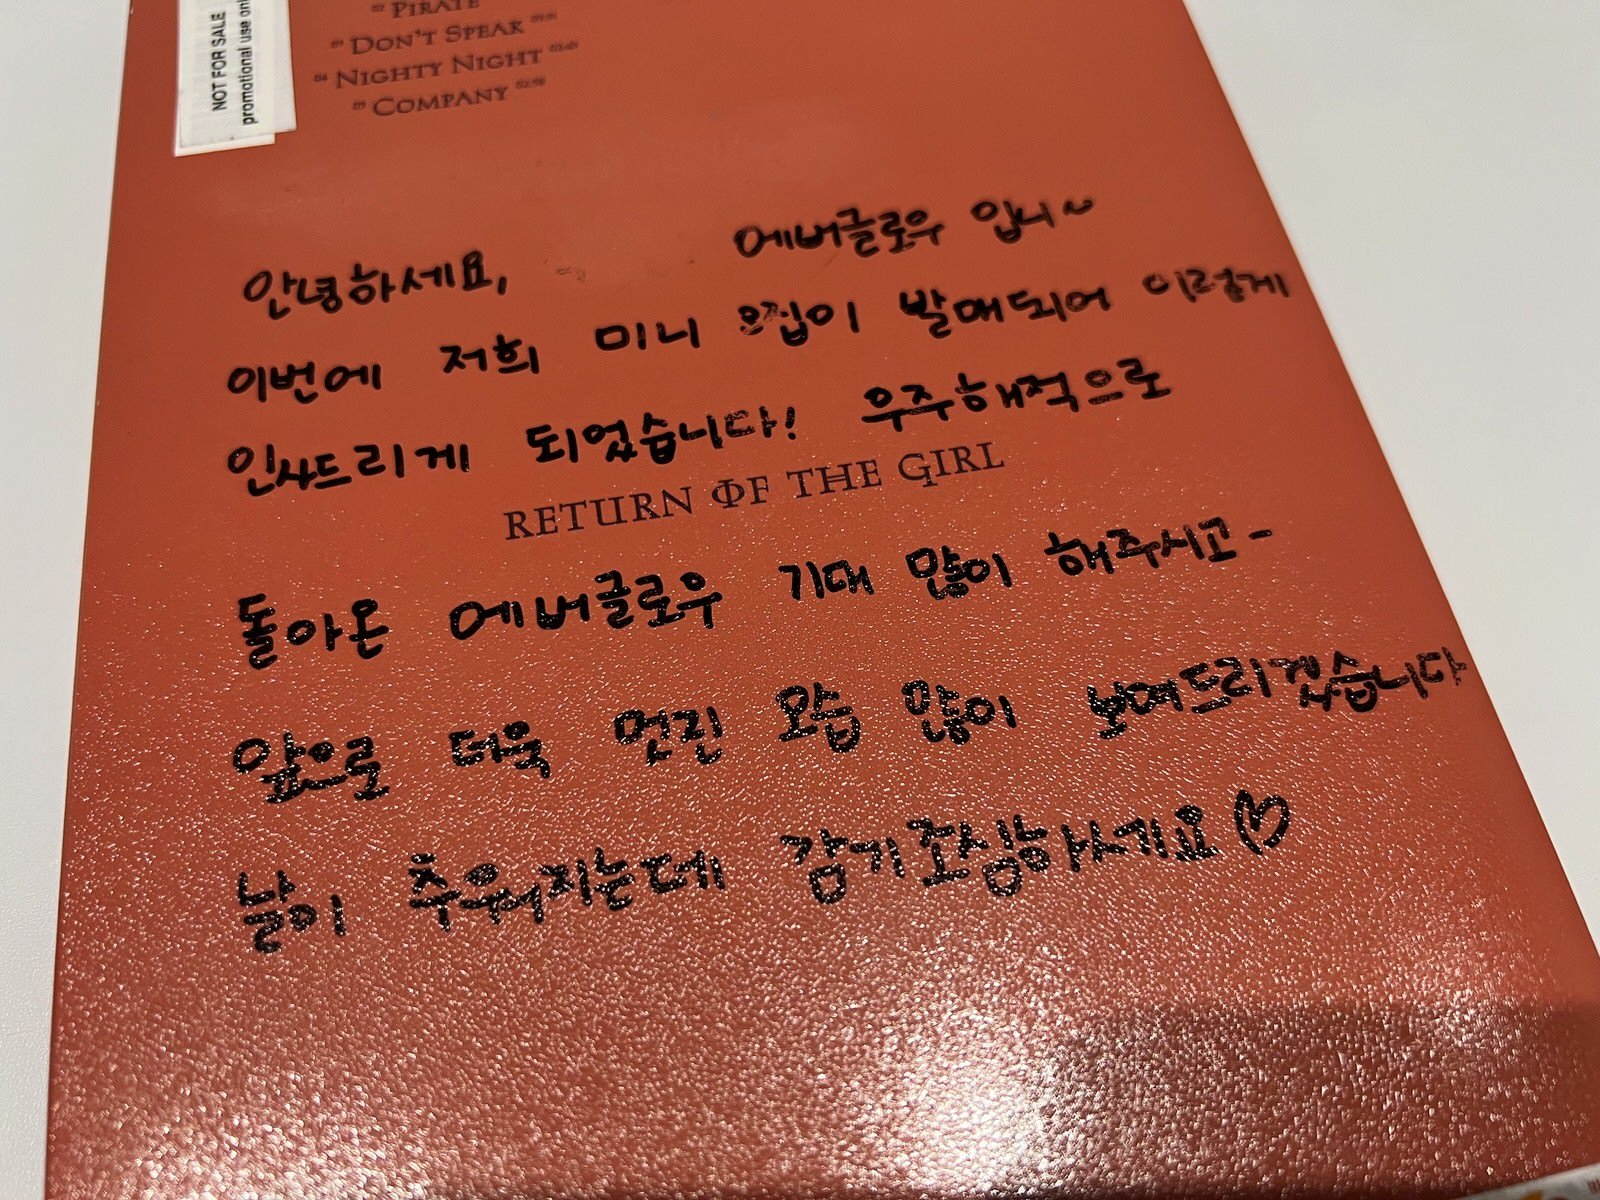 NOT FOR SALE
promotional use onl
PIRATE
DON'T SPEAK
NIGHTY NIGHT
COMPANY
안녕하세요, 에버글로우 입니~
이번에 저희 미니 앨범이 발매되어 이렇게
인사드리게 되었습니다! 우주해적으로
RETURN OF THE GIRL
돌아온 에버글로우 기대 많이 해주시고-
앞으로 더욱 멋진 모습 많이 보여드리겠습니다
날이 추워지는데 감기조심하세요♡